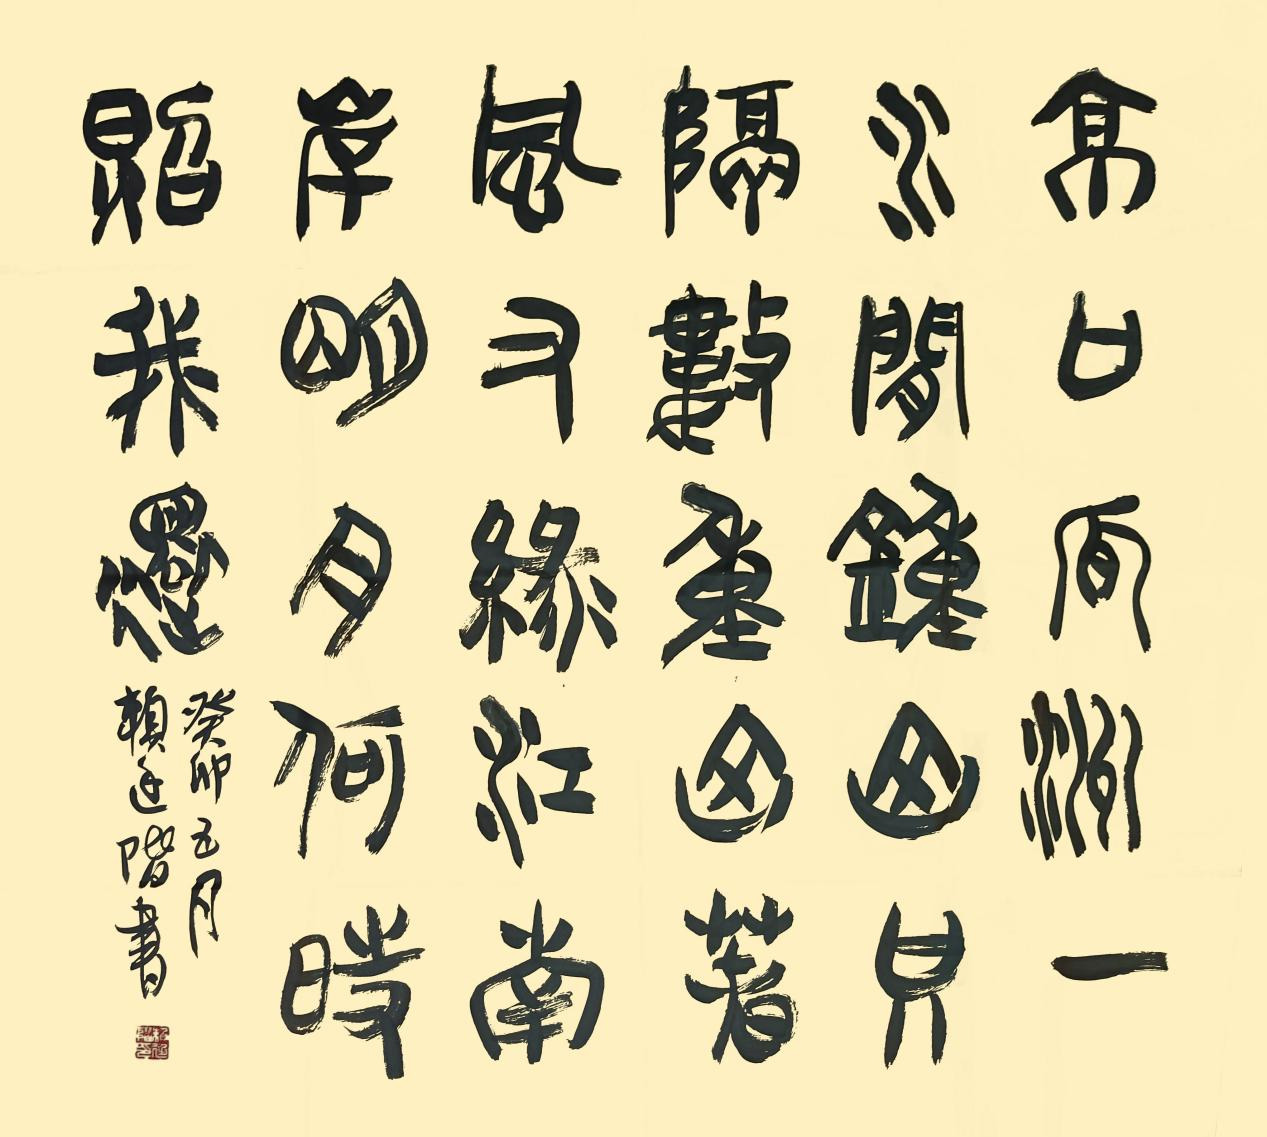 京口瓜洲一
水間鍾山只
隔數重山春
風又綠江南
岸明月何時
照我還
癸卯五月
賴廷階書